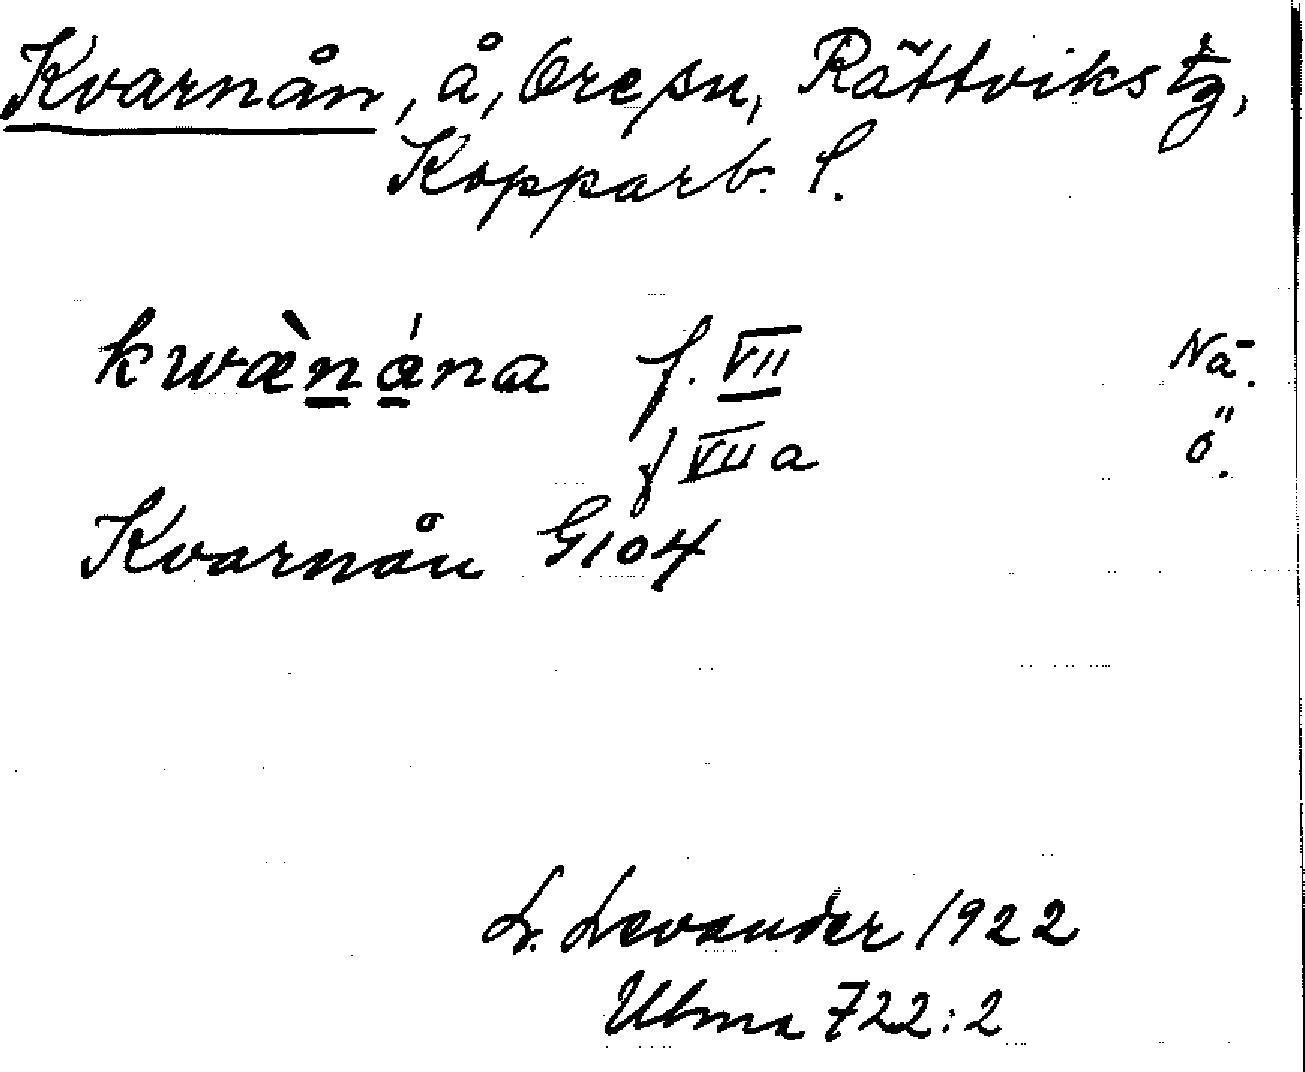 Kvarnån, å, Ore sn, Rättviks tg,
Kopparb. l.
kwæ̀nána f. VII Nä.
f VII a ö.
Kvarnån G104
L. Levander 1922
Ulma 722:2